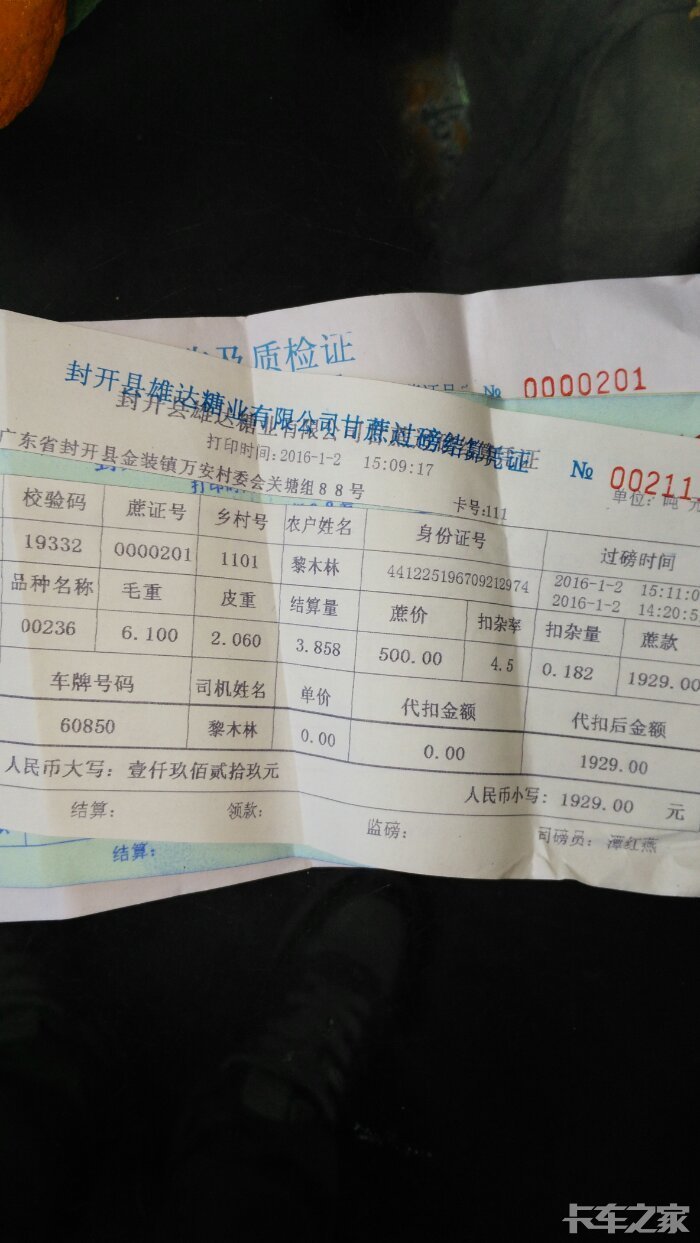 及质检证
№ 0000201
封开县雄达糖业有限公司甘蔗过磅结算凭证
№ 00211
打印时间:2016-1-2 15:09:17
广东省封开县金装镇万安村委会关塘组88号
卡号:111
单位:吨 元
校验码 蔗证号 乡村号 农户姓名 身份证号 过磅时间
19332 0000201 1101 黎木林 441225196709212974 2016-1-2 15:11:0
2016-1-2 14:20:5
品种名称 毛重 皮重 结算量 蔗价 扣杂率 扣杂量 蔗款
00236 6.100 2.060 3.858 500.00 4.5 0.182 1929.00
车牌号码 司机姓名 单价 代扣金额 代扣后金额
60850 黎木林 0.00 0.00 1929.00
人民币大写: 壹仟玖佰贰拾玖元
人民币小写: 1929.00 元
结算: 领款: 监磅: 司磅员: 潭红燕
结算:
卡车之家